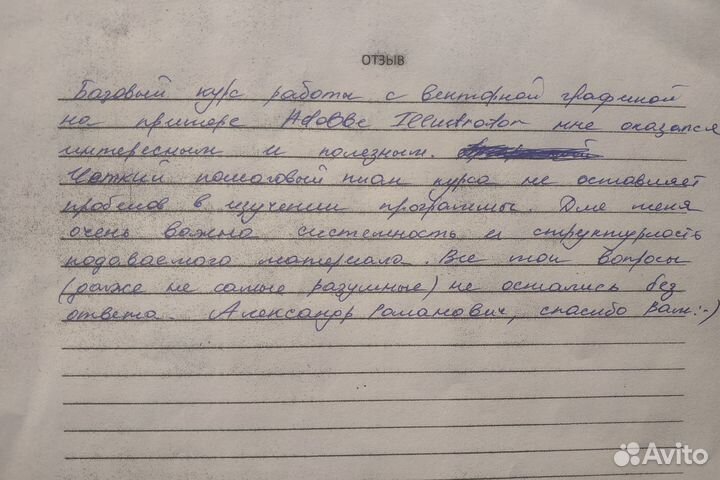 ОТЗЫВ
Базовый курс работы с векторной графикой
на примере Adobbe Illustrator мне оказался
интересным и полезным.
Четкий пошаговый план курса не оставляет
пробелов в изучении программы. Для меня
очень важна системность и структурность
подаваемого материала. Все мои вопросы
(даже не самые разумные) не остались без
ответа. Александр Романович, спасибо Вам :-)
Avito